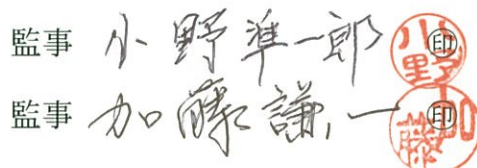 監事 小野準一郎 ㊞ 小野
監事 加藤謙一 ㊞ 加藤